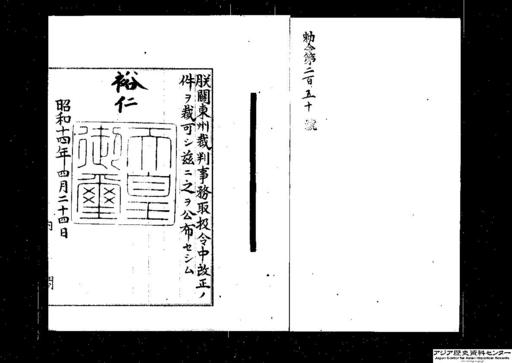 勅令第二百五十號
朕關東州裁判事務取扱令中改正ノ
件ヲ裁可シ茲ニ之ヲ公布セシム
裕仁
天皇
御璽
昭和十四年四月二十四日
内閣
アジア歴史資料センター
Japan Center for Asian Historical Records